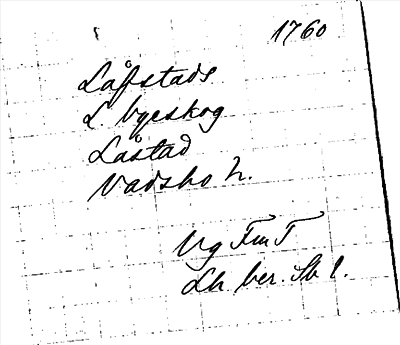 1760
Låftstads
L byeskog
Låstad
Vadsbo h.
Ug Fm T
Lh ber. Sb l.